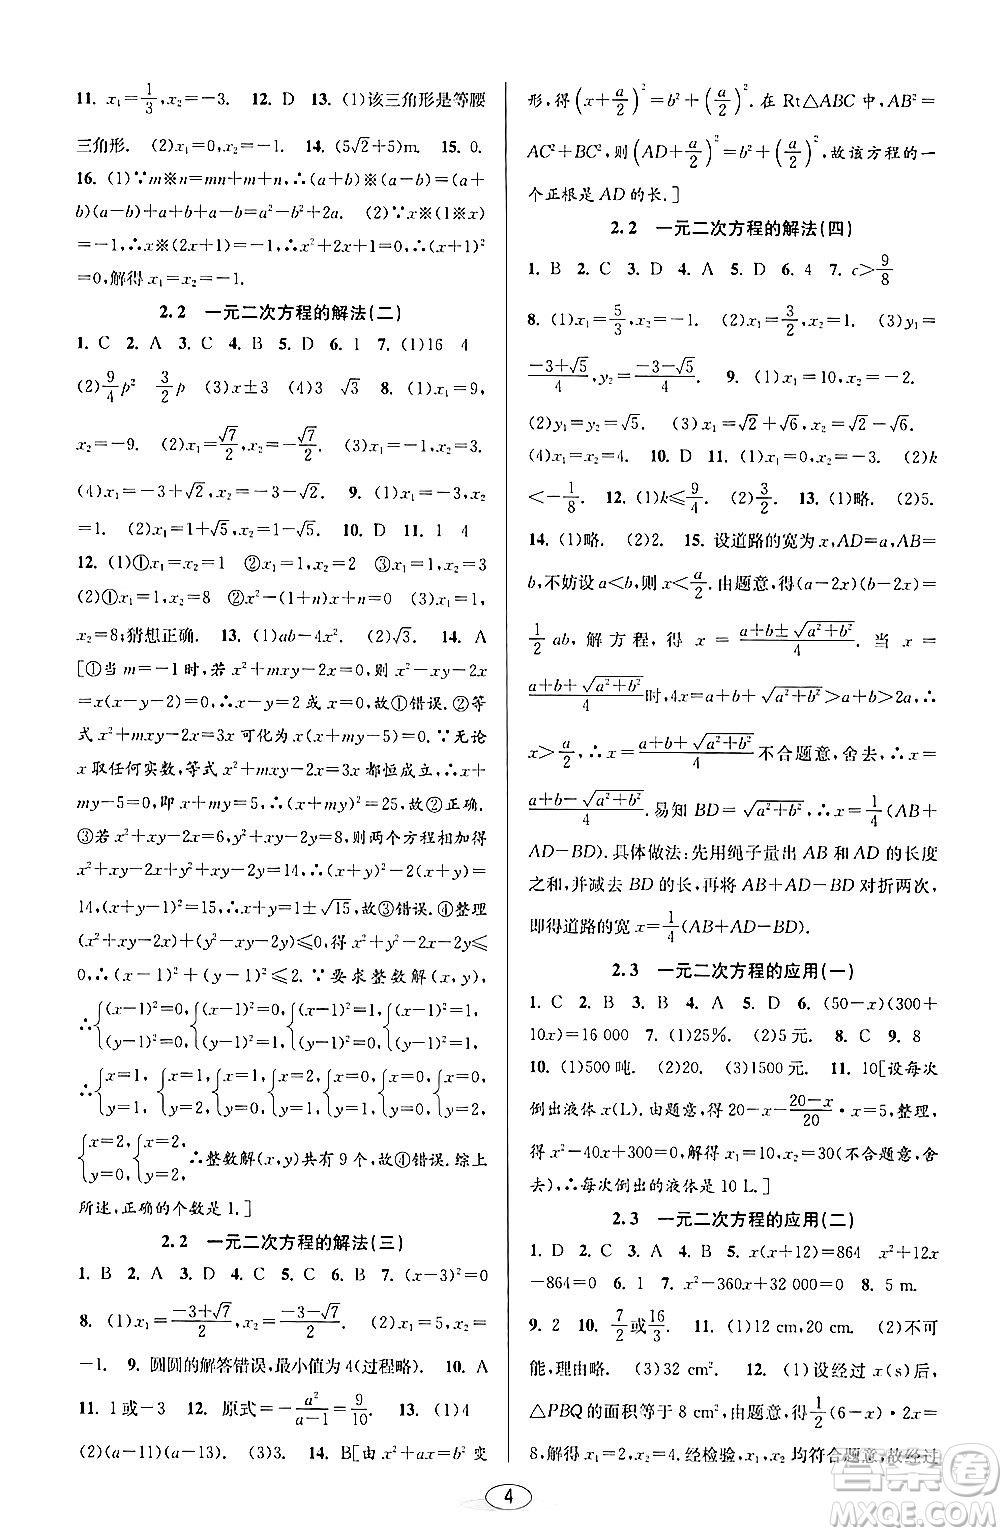 11. x₁=1/3,x₂=-3. 12. D 13. (1)该三角形是等腰
三角形. (2)x₁=0,x₂=-1. 14. (5√2+5)m. 15. 0.
16. (1)∵m※n=mn+m+n,∴(a+b)※(a-
b)=(a+b)(a-b)+a+b+a-b=a²-b²+2a. (2)∵x※(2x+1)=-1,∴x(2x+1)+x+2x+1
=-1,∴x※(2x+1)=-1,∴2x²+4x+2=0,∴(x+1)²
=0,解得x₁=x₂=-1.
2.2 一元二次方程的解法(二)
1. C 2. A 3. C 4. B 5. D 6. 1 7. (1)16 4
(2)9/4 p² 3/2 p (3)x±3 (4)3 √3 8. (1)x₁=9,
x₂=-9. (2)x₁=√7/2,x₂=-√7/2. (3)x₁=-1,x₂=3.
(4)x₁=-3+√2,x₂=-3-√2. 9. (1)x₁=-3,x₂
=1. (2)x₁=1+√5,x₂=1-√5. 10. D 11. 1 4
12. (1)①x₁=x₂=1 ②x₁=1,x₂=2 ③x₁=1,x₂=3
(2)①x₁=1,x₂=8 ②x²-(1+n)x+n=0 (3)x₁=1,
x₂=8;猜想正确. 13. (1)ab-4x². (2)√3. 14. A
[①当m=-1时,若x²+mxy-2x=0,则x²-xy-2x
=x(x-y-2)=0,x=0或x-y=2,故①错误.②等
式x²+mxy-2x=3x可化为x(x+my-5)=0.∵无论
x取任何实数,等式x²+mxy-2x=3x都恒成立,∴x+
my-5=0,即x=5,my=0,∴m=y=0,故②正确.
③若x²+xy-2x=6,y²+xy-2y=8,则两个方程相加得
x²+xy-2x+y²+xy-2y=14,∴(x+y)²-2(x+y)=
14,∴(x+y-1)²=15,∴x+y=1±√15,故③错误.④整理
(x²+xy-2x)+(y²-xy-2y)≤0,得x²-2x+y²-2y≤
0,∴(x-1)²+(y-1)²≤2.∵要求整数解(x,y),
∴{(x-1)²=0,(y-1)²=0或{(x-1)²=1,(y-1)²=0或{(x-1)²=0,(y-1)²=1或{(x-1)²=1,(y-1)²=1.
∴{x=1,y=1或{x=2,y=1或{x=0,y=1或{x=1,y=2或{x=1,y=0或{x=0,y=0或{x=0,y=2或
{x=2,y=2或{x=2,y=0.∴整数解(x,y)共有9个,故④错误.综上
所述,正确的个数是1.]
2.2 一元二次方程的解法(三)
1. B 2. B 3. D 4. C 5. B 6. C 7. (x-3)²=0
8. (1)x₁=(-3+√7)/2,x₂=(-3-√7)/2. (2)x₁=5,x₂=
-1. 9. 圆圆的解答错误,最小值为4(过程略). 10. A
11. 1或-3 12. 原式=-a²/(a-1)=9/10. 13. (1)4
(2)(a-11)(a-13). (3)3. 14. B[由x²+ax=b²变
形,得(x+a/2)²=b²+(a/2)².在Rt△ABC中,AB²=
AC²+BC²,则(AD+a/2)²=b²+(a/2)²,故该方程的一
个正根是AD的长.]
2.2 一元二次方程的解法(四)
1. B 2. C 3. C 4. A 5. D 6. 4 7. c>9/8
8. (1)x₁=5/3,x₂=-1. (2)x₁=3/2,x₂=2. (3)y₁=
(-3+√5)/4,y₂=(-3-√5)/4. 9. (1)x₁=10,x₂=-2.
(2)y₁=y₂=√2. (3)x₁=√2+√6,x₂=√2-√6.
(4)x₁=x₂=4. 10. D 11. (1)x₁=0,x₂=-3. (2)k
<-1/8. 12. (1)k≤9/4. (2)3/2. 13. (1)略. (2)5.
14. (1)略. (2)2. 15. 设道路的宽为x,AD=a,AB=
b,不妨设a<b,则x<a/2.由题意,得(a-2x)(b-2x)=
1/2 ab,解方程,得 x=(a+b±√(a²+b²))/4. 当 x=
(a+b+√(a²+b²))/4时,4x=a+b+√(a²+b²)>a+b>2a,∴
x>a/2,∴x=(a+b+√(a²+b²))/4不合题意,舍去,∴x=
(a+b-√(a²+b²))/4.易知BD=√(a²+b²),∴x=1/4(AB+
AD-BD).具体做法:先用绳子量出AB和AD的长度
之和,并减去BD的长,再将AB+AD-BD对折两次,
即得道路的宽x=1/4(AB+AD-BD).
2.3 一元二次方程的应用(一)
1. C 2. B 3. B 4. A 5. D 6. (50-x)(300+
10x)=16 000 7. (1)25%. (2)5元. 8. C 9. 8
10. (1)500吨. (2)20. (3)1500元. 11. 10[设每次
倒出液体x(L).由题意,得20-x-(20-x)/20·x=5,整理,
得x²-40x+300=0,解得x₁=10,x₂=30(不合题意,舍
去),∴每次倒出的液体是10 L.]
2.3 一元二次方程的应用(二)
1. D 2. B 3. D 4. C 5. x(x+12)=864 x²+12x
-864=0 6. 1 7. x²-360x+32 000=0 8. 5 m.
9. 2 10. 7/2或16/3. 11. (1)12 cm,20 cm. (2)不可
能,理由略. (3)32 cm². 12. (1)设经过x(s)后,
△PBQ的面积等于8 cm²,由题意,得1/2(6-x)·2x=
8,解得x₁=2,x₂=4,经检验,x₁,x₂均符合题意,故经过
4
答案圈
MXQE.COM